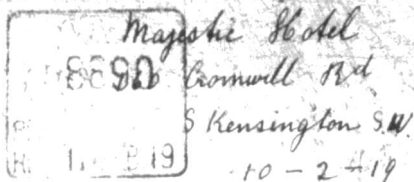 Majestic Hotel
Cromwell Rd
S Kensington S.W
10 - 2 - 19